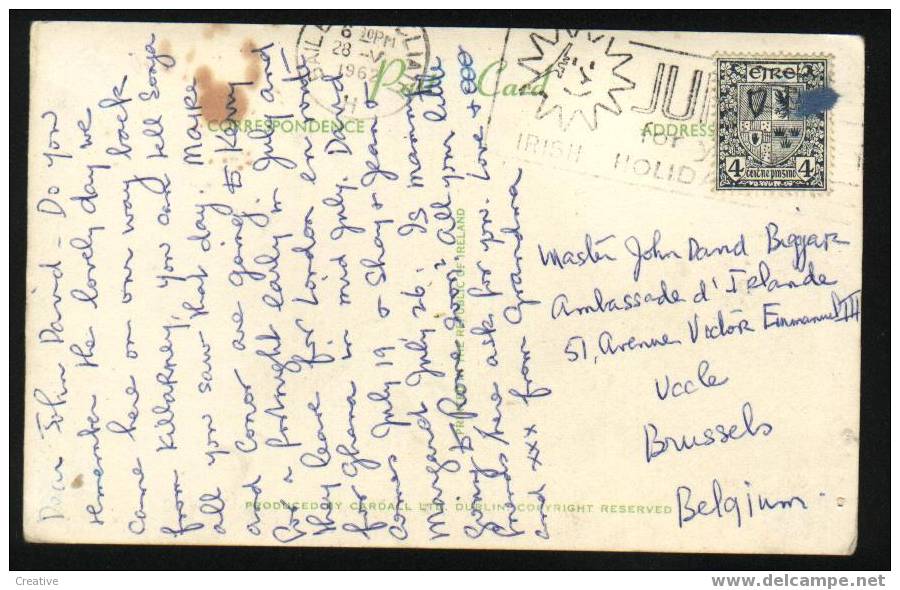 Dear John David - Do you
remember the lovely day we
came here on our way back
from Killarney, you can tell Sonja
all you saw that day. Maire
and Conor are going to Kerry
for a fortnight early in July and
they leave for London en route
for Ghana in mid July. David
comes July 19 & Shay & Jean &
Margaret July 26. Is mammy
going to Rome soon? All your little
friends here ask for you. Love &
and xxx from Grandma
BAILE CLIATH
6 30PM
28 -V
1962
Post Card
CORRESPONDENCE
ADDRESS
JU
for y
IRISH HOLID
EIRE
4 4
ceithre pinginn
Master John David Biggar
Ambassade d'Irlande
51, Avenue Victor Emmanuel III
Uccle
Brussels
Belgium.
PRINTED IN THE REPUBLIC OF IRELAND
PRODUCED BY CARDALL LTD. DUBLIN. COPYRIGHT RESERVED
Creative
www.delcampe.net